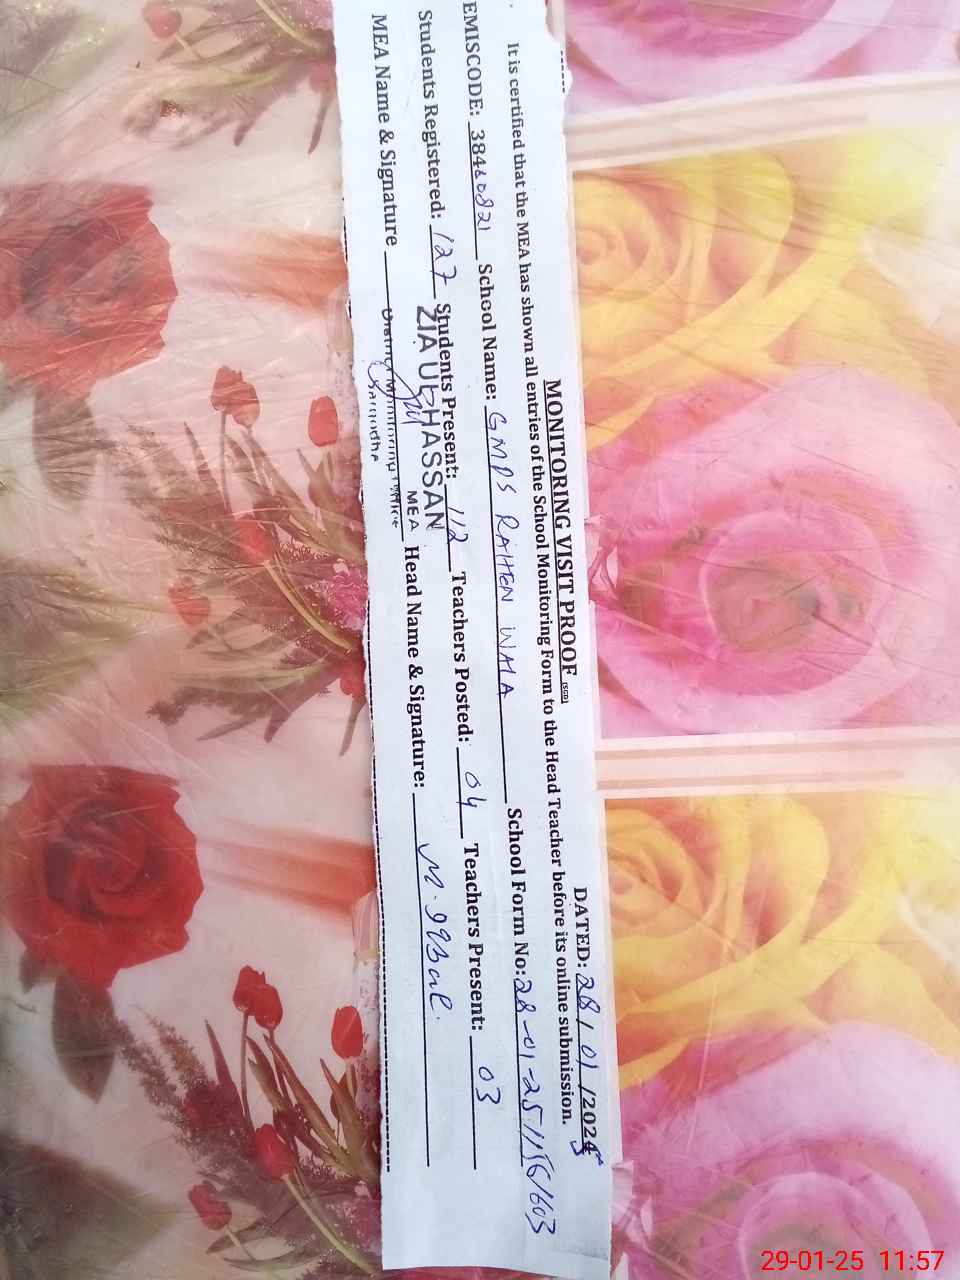 MONITORING VISIT PROOF (SGD)
DATED: 28/01/2025
It is certified that the MEA has shown all entries of the School Monitoring Form to the Head Teacher before its online submission.
EMISCODE: 38460821 School Name: GMPS RAHTEN WALA School Form No: 28-01-25/1156/603
Students Registered: 127 Students Present: 112 Teachers Posted: 04 Teachers Present: 03
ZIA UL HASSAN
MEA
MEA Name & Signature Head Name & Signature: M. Iqbal
District Monitoring Office
Sargodha
29-01-25 11:57